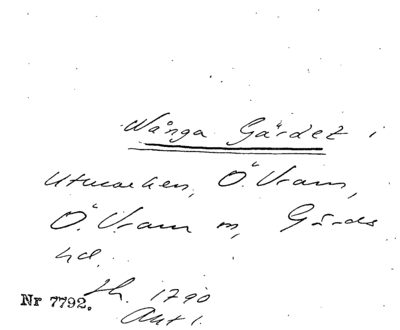 Wånga Gärdet i
Utmarken, Ö. Vram,
Ö. Vram sn, Gärds
hd.
Nr 7792. Lh. 1790
Akt 1.